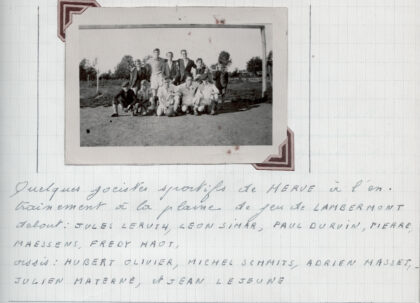 Quelques jocistes sportifs de HERVE à l'en-
trainement à la plaine de jeu de LAMBERMONT
debout: JULES LERUTH, LEON SIMAR, PAUL DURVIN, PIERRE
MAESSENS, FREDY HAOT,
assis: HUBERT OLIVIER, MICHEL SCHMITS, ADRIEN MASSET,
JULIEN MATERNE, et JEAN LEJEUNE